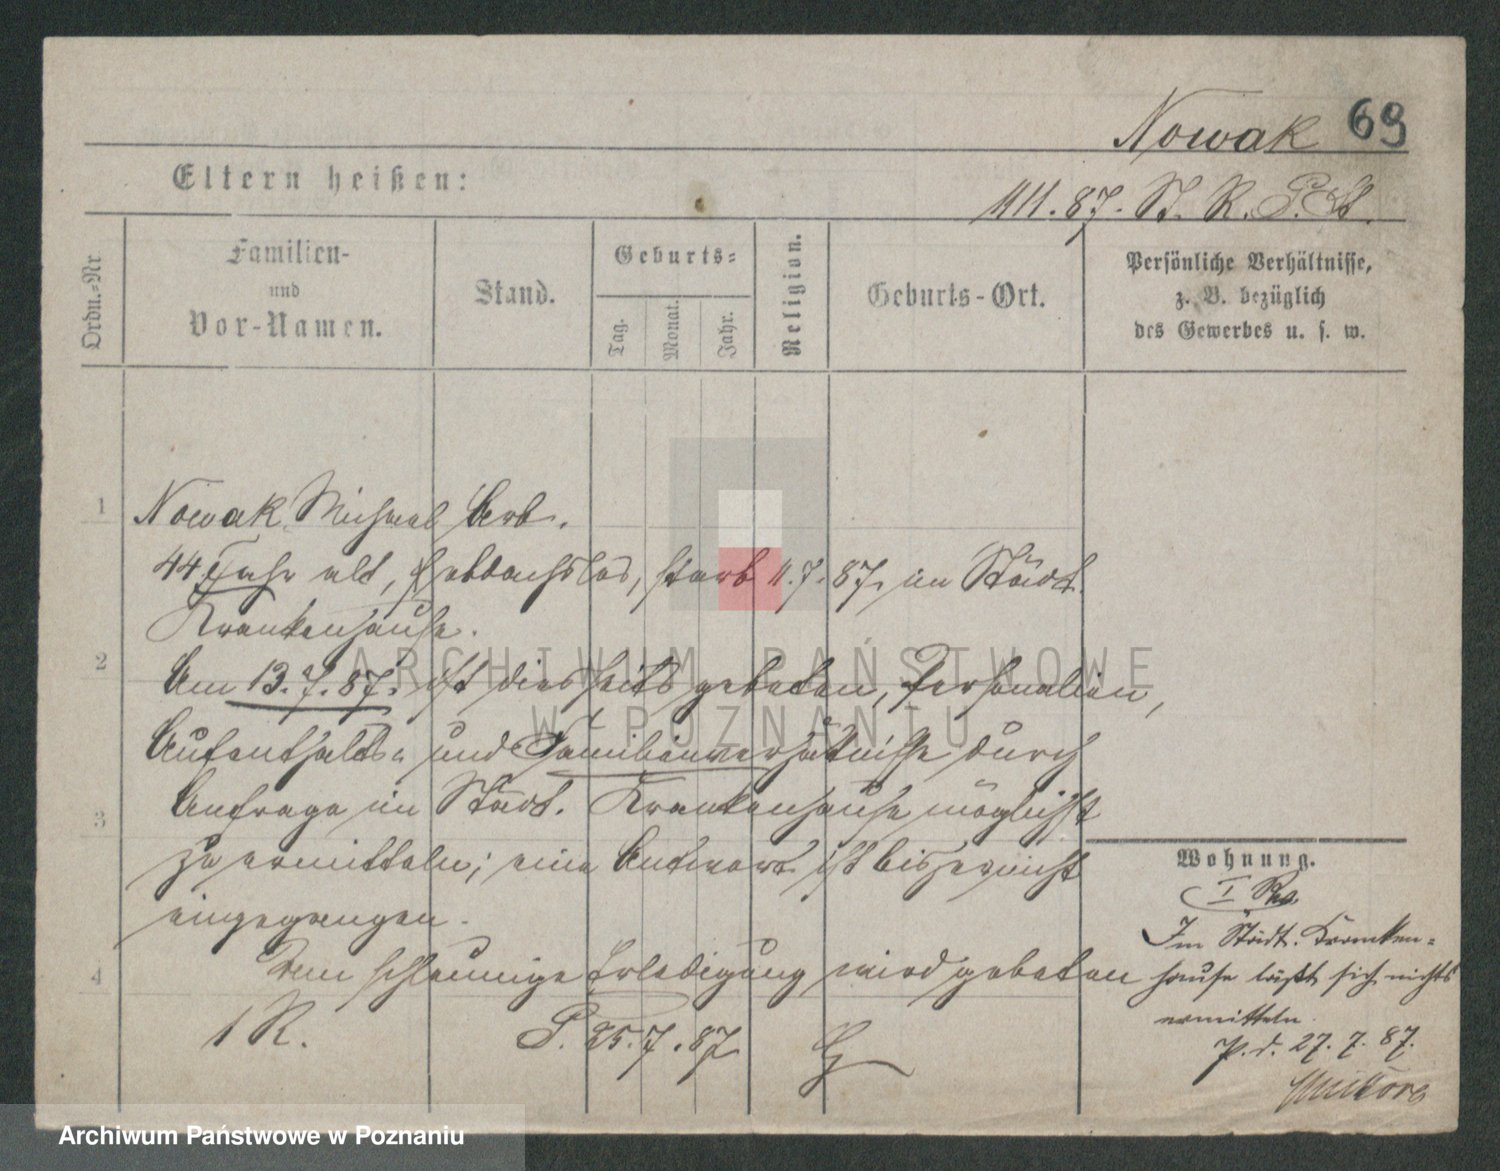 Nowak 69
Eltern heißen:
1111.87. St. R. P. St.
Ordn.-Nr
Familien-
und
Vor-Namen.
Stand.
Geburts-
Tag.
Monat.
Jahr.
Religion.
Geburts-Ort.
Persönliche Verhältnisse,
z. B. bezüglich
des Gewerbes u. s. w.
1
Nowak Michael Arb.
44 Jahr alt, obdachslos, starb 11.7.87. im Städt.
Krankenhause.
2
Am 13.7.87. ist diesseits gebeten, Personalien,
Aufenthalts- und Familienverhältnisse durch
3
Anfrage im Städt. Krankenhause möglichst
zu ermitteln; eine Antwort ist bisher nicht
eingegangen.
4
Um schleunige Erledigung wird gebeten
1 R. P. 25.7.87.
Wohnung.
I Rev.
Im Städt. Kranken-
hause läßt sich nichts
ermitteln.
P. d. 27. 7. 87.
ARCHIWUM PAŃSTWOWE
W POZNANIU
Archiwum Państwowe w Poznaniu